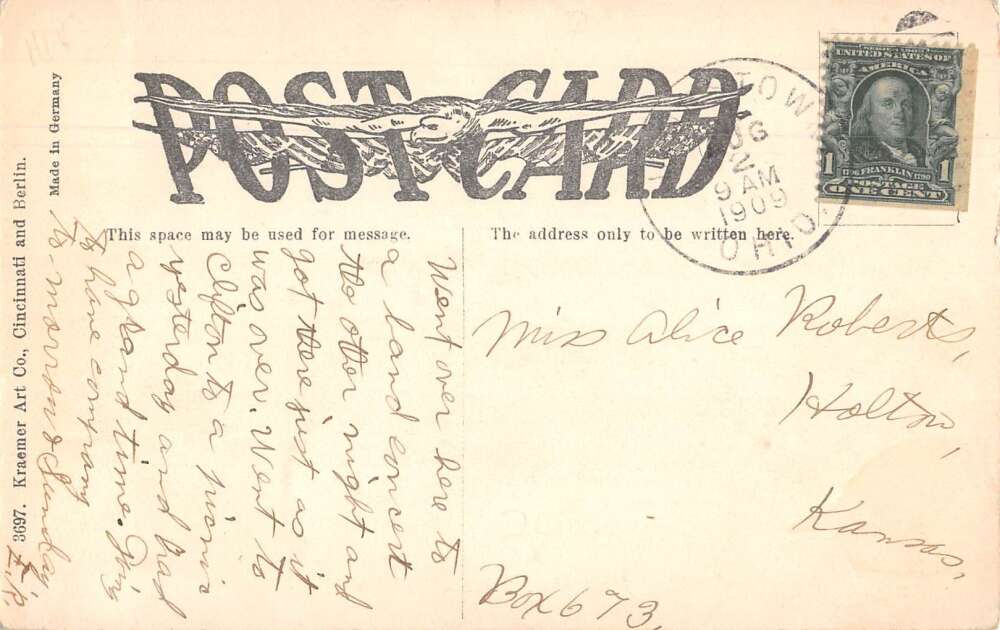 POST CARD
This space may be used for message.
The address only to be written here.
TOW
2
9 AM
1909
OHIO.
SERIES 1902
UNITED STATES OF
AMERICA
1 1706 FRANKLIN 1790 1
POSTAGE
ONE CENT
Made in Germany
3697. Kraemer Art Co., Cincinnati and Berlin.
Went over here to
a band concert
the other night and
got there just as it
was over. Went to
Clifton to a picnic
yesterday and had
a grand time. Going
to have company
to-morrow & Sunday.
Miss Alice Roberts,
Holton,
Kansas,
Box 673,